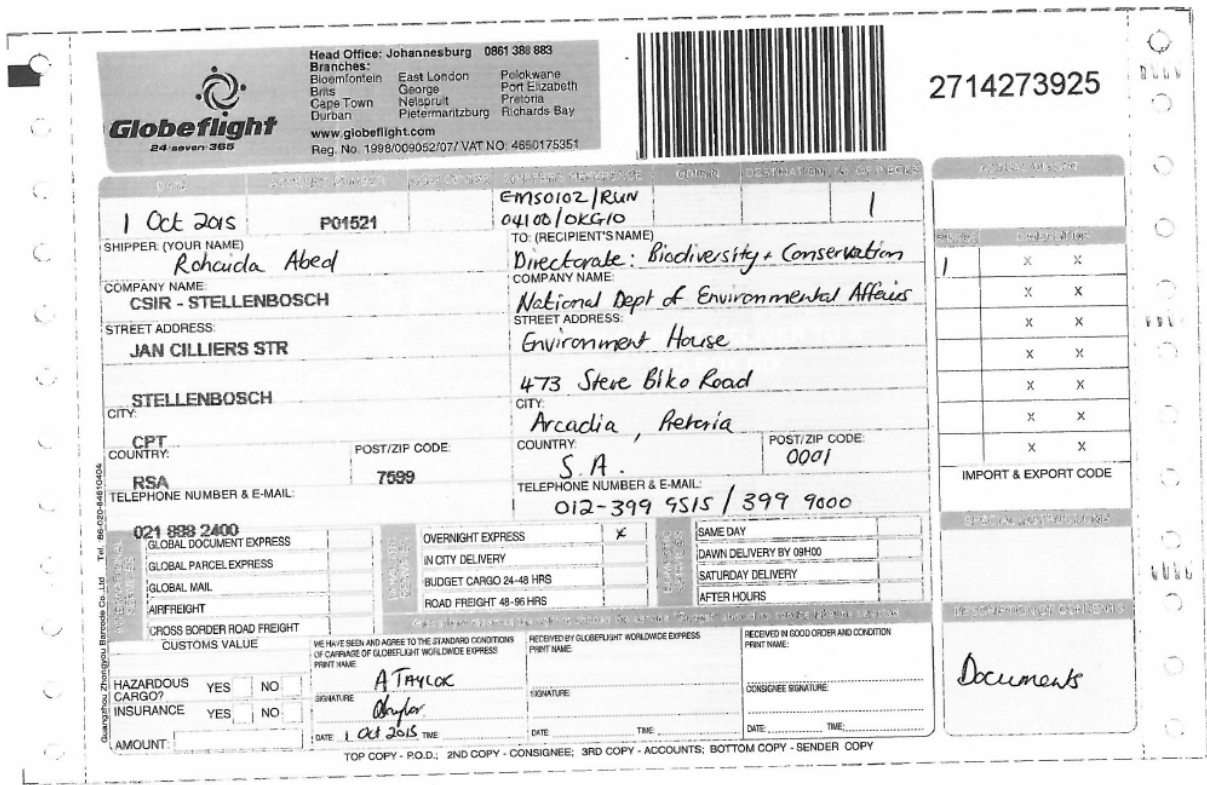 Globeflight
24 seven 365
Head Office: Johannesburg 0861 388 883
Branches:
Bloemfontein East London Polokwane
Brits George Port Elizabeth
Cape Town Nelspruit Pretoria
Durban Pietermaritzburg Richards Bay
www.globeflight.com
Reg. No. 1998/009052/07/ VAT NO: 4650175351
2714273925
DATE ACCOUNT NUMBER SHIPPER'S REFERENCE ORIGIN DESTINATION NO. OF PIECES
EMS0102/RUN
1 Oct 2015 P01521 04100/OKG10 1
SHIPPER: (YOUR NAME)
Rohaida Abed
COMPANY NAME:
CSIR - STELLENBOSCH
STREET ADDRESS:
JAN CILLIERS STR
STELLENBOSCH
CITY:
CPT
COUNTRY: POST/ZIP CODE:
RSA 7599
TELEPHONE NUMBER & E-MAIL:
021 888 2400
TO: (RECIPIENT'S NAME)
Directorate: Biodiversity + Conservation
COMPANY NAME:
National Dept of Environmental Affairs
STREET ADDRESS:
Environment House
473 Steve Biko Road
CITY:
Arcadia, Pretoria
COUNTRY: POST/ZIP CODE:
S.A. 0001
TELEPHONE NUMBER & E-MAIL:
012-399 9515 / 399 9000
1 X X
X X
X X
X X
X X
X X
X X
IMPORT & EXPORT CODE
SPECIAL INSTRUCTIONS
DESCRIPTION OF CONTENTS
Documents
GLOBAL DOCUMENT EXPRESS
GLOBAL PARCEL EXPRESS
GLOBAL MAIL
AIRFREIGHT
CROSS BORDER ROAD FREIGHT
OVERNIGHT EXPRESS x
IN CITY DELIVERY
BUDGET CARGO 24-48 HRS
ROAD FREIGHT 48-96 HRS
SAME DAY
DAWN DELIVERY BY 09H00
SATURDAY DELIVERY
AFTER HOURS
CUSTOMS VALUE
HAZARDOUS CARGO? YES NO
INSURANCE YES NO
AMOUNT:
WE HAVE SEEN AND AGREE TO THE STANDARD CONDITIONS
OF CARRIAGE OF GLOBEFLIGHT WORLDWIDE EXPRESS
PRINT NAME
A TAYLOR
SIGNATURE
DATE 1 Oct 2015 TIME
RECEIVED BY GLOBEFLIGHT WORLDWIDE EXPRESS
PRINT NAME:
SIGNATURE
DATE TIME
RECEIVED IN GOOD ORDER AND CONDITION
PRINT NAME:
CONSIGNEE SIGNATURE:
DATE: TIME:
TOP COPY - P.O.D.; 2ND COPY - CONSIGNEE; 3RD COPY - ACCOUNTS; BOTTOM COPY - SENDER COPY
Guangzhou Zhongyou Barcode Co.,Ltd Tel. 86-020-84610404